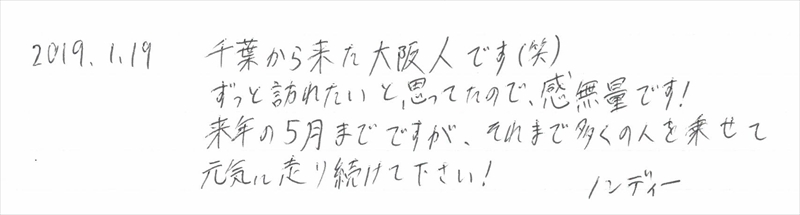 2019.1.19 千葉から来た大阪人です(笑)
ずっと訪れたいと思ってたので、感無量です!
来年の5月までですが、それまで多くの人を乗せて
元気に走り続けて下さい!
ノンディー